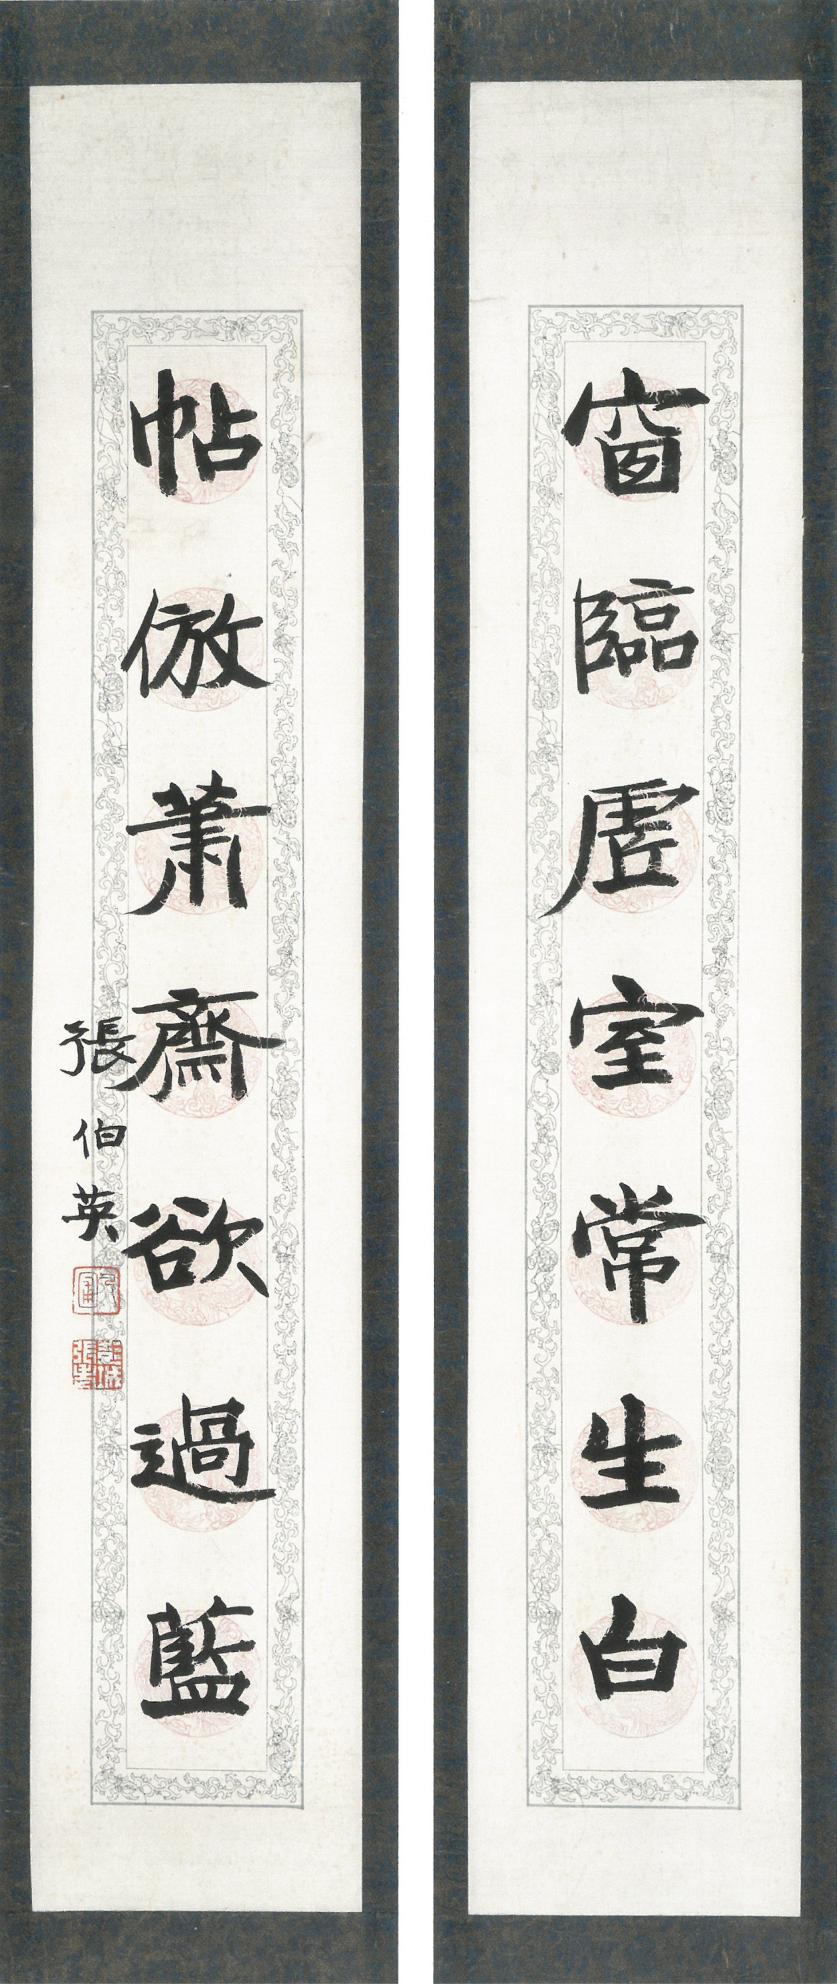 窗臨虛室常生白
帖倣蕭齋欲過藍
張伯英